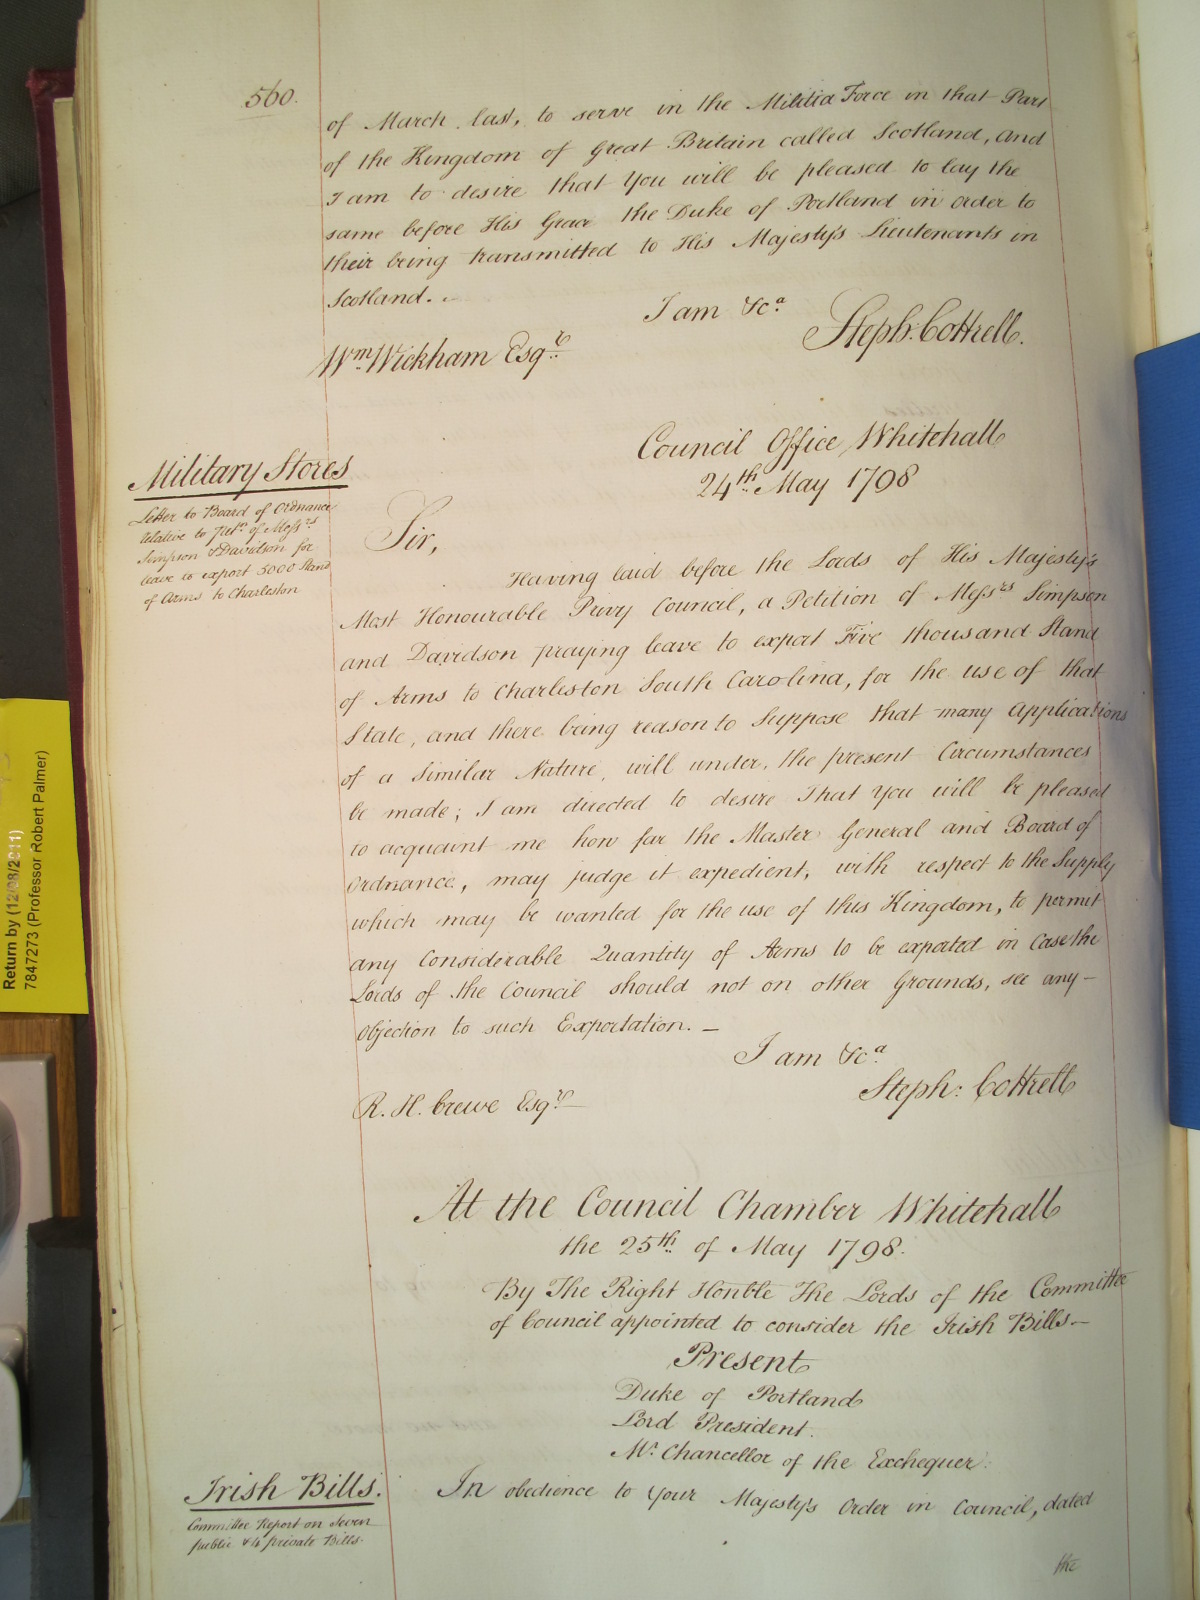 560.
of March last, to serve in the Militia Force in that Part
of the Kingdom of Great Britain called Scotland, and
I am to desire that You will be pleased to lay the
same before His Grace the Duke of Portland in order to
their being transmitted to His Majesty's Lieutenants in
Scotland.
I am &c.a
Steph: Cottrell.
Wm. Wickham Esqr.
Council Office Whitehall
24th. May 1798
Military Stores
Letter to Board of Ordnance
relative to Petn. of Messrs
Simpson & Davidson for
leave to export 5000 Stand
of Arms to Charleston
Sir,
Having laid before the Lords of His Majesty's
Most Honourable Privy Council, a Petition of Messrs Simpson
and Davidson praying leave to export Five thousand Stand
of Arms to Charleston South Carolina, for the use of that
State, and there being reason to Suppose that many applications
of a Similar Nature, will under, the present Circumstances
be made; I am directed to desire That You will be pleased
to acquaint me how far the Master General and Board of
Ordnance, may judge it expedient, with respect to the Supply
which may be wanted for the use of this Kingdom, to permit
any Considerable Quantity of Arms to be exported in Case the
Lords of the Council should not on other Grounds, see any-
Objection to such Exportation. —
I am &c.a
Steph: Cottrell
R. H. Crewe Esqr.
At the Council Chamber Whitehall
the 25th. of May 1798.
By The Right Honble The Lords of the Committee
of Council appointed to consider the Irish Bills—
Present
Duke of Portland
Lord President.
Mr. Chancellor of the Exchequer.
Irish Bills.
Committee Report on Seven
public & 4 private Bills.
In obedience to Your Majesty's Order in Council, dated
the
Return by (12/08/2011)
7847273 (Professor Robert Palmer)